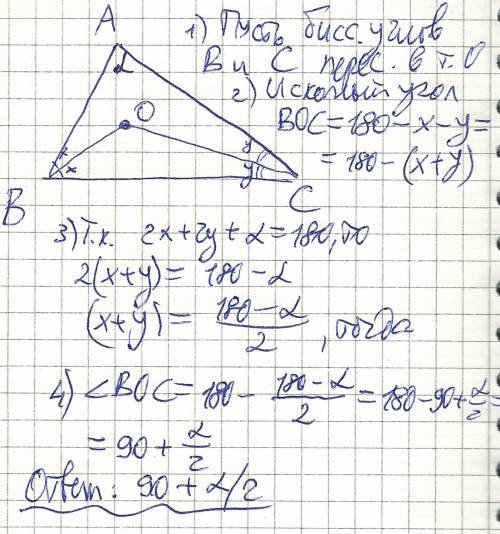 A
1) Пусть бисс. углов
B и C перес. в т. O
2) Искомый угол
BOC = 180 - x - y =
= 180 - (x + y)
α
O
x
x
y
y
B
C
3) Т.к. 2x + 2y + α = 180, то
2(x + y) = 180 - α
(x + y) = (180 - α)/2, тогда
4) ∠BOC = 180 - (180 - α)/2 = 180 - 90 + α/2 =
= 90 + α/2
Ответ: 90 + α/2